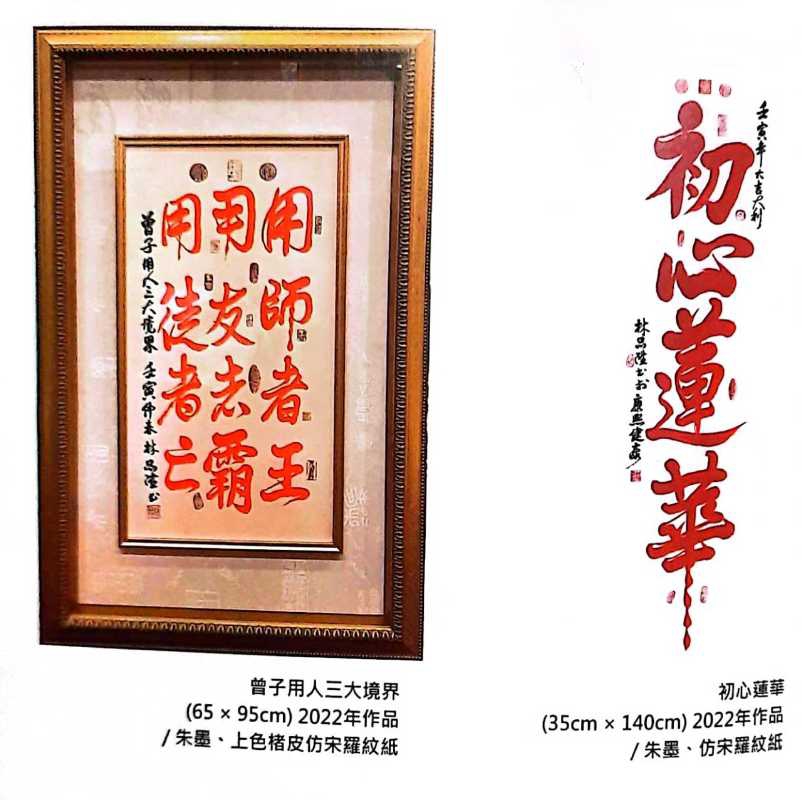 用師者王
用友者霸
用徒者亡
曾子用人三大境界 壬寅
曾子用人三大境界
(65 × 95cm) 2022年作品
/ 朱墨、上色楮皮仿宋羅紋紙
壬寅年大吉大利
初心蓮華
初心蓮華
(35cm × 140cm) 2022年作品
/ 朱墨、仿宋羅紋紙